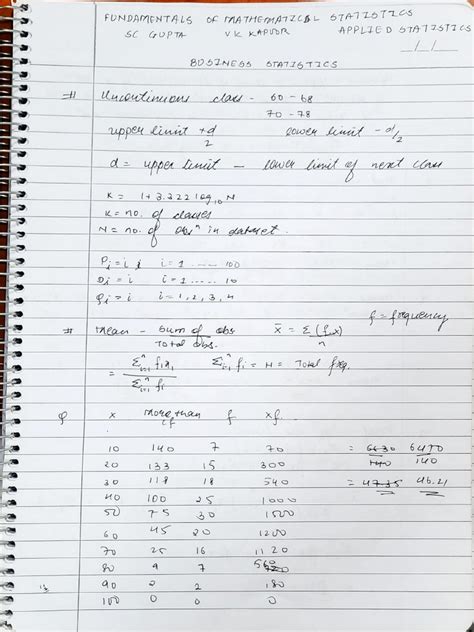 FUNDAMENTALS OF MATHEMATICAL STATISTICS
SC GUPTA VK KAPOOR APPLIED STATISTICS
_/_/_
BUSINESS STATISTICS
# Uncontinuous class - 60 - 68
70 - 78
upper limit + d/2 lower limit - d/2
d = upper limit - lower limit of next class
K = 1 + 3.322 log10 N
K = no. of classes
N = no. of obsn in dataset.
Pi = i i = 1 ..... 100
Di = i i = 1 ..... 10
Qi = i i = 1, 2, 3, 4
f = frequency
# Mean - Sum of obs / Total obs. x̄ = Σ(fix) / n
= Σi=1^n fixi / Σi=1^n fi Σi=1^n fi = N = Total freq.
Q x more than cf f xf
10 140 7 70 = 6630/140 6470/140
20 133 15 300
30 118 18 540 = 47.35 46.21
40 100 25 1000
50 75 30 1500
60 45 20 1200
70 25 16 1120
80 9 7 560
90 2 2 180
100 0 0 0